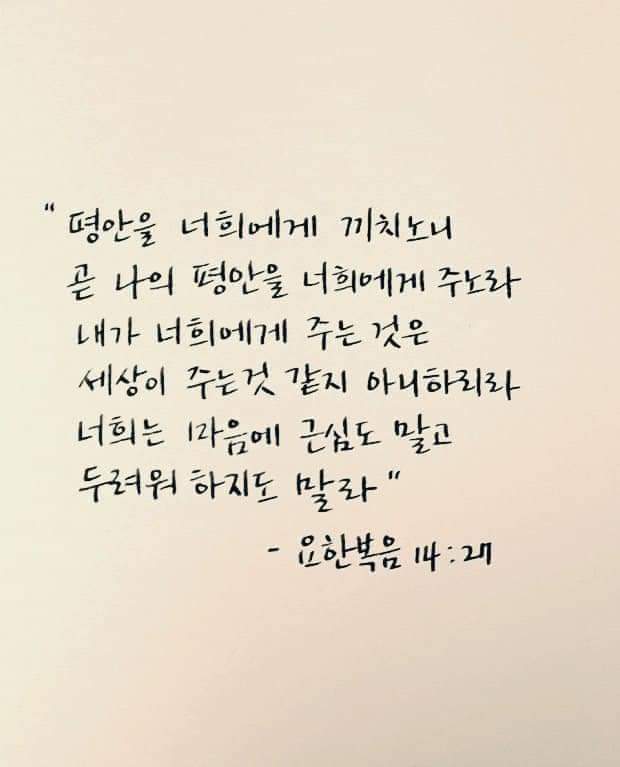 “평안을 너희에게 끼치노니
곧 나의 평안을 너희에게 주노라
내가 너희에게 주는 것은
세상이 주는것 같지 아니하리라
너희는 마음에 근심도 말고
두려워 하지도 말라”
- 요한복음 14:27